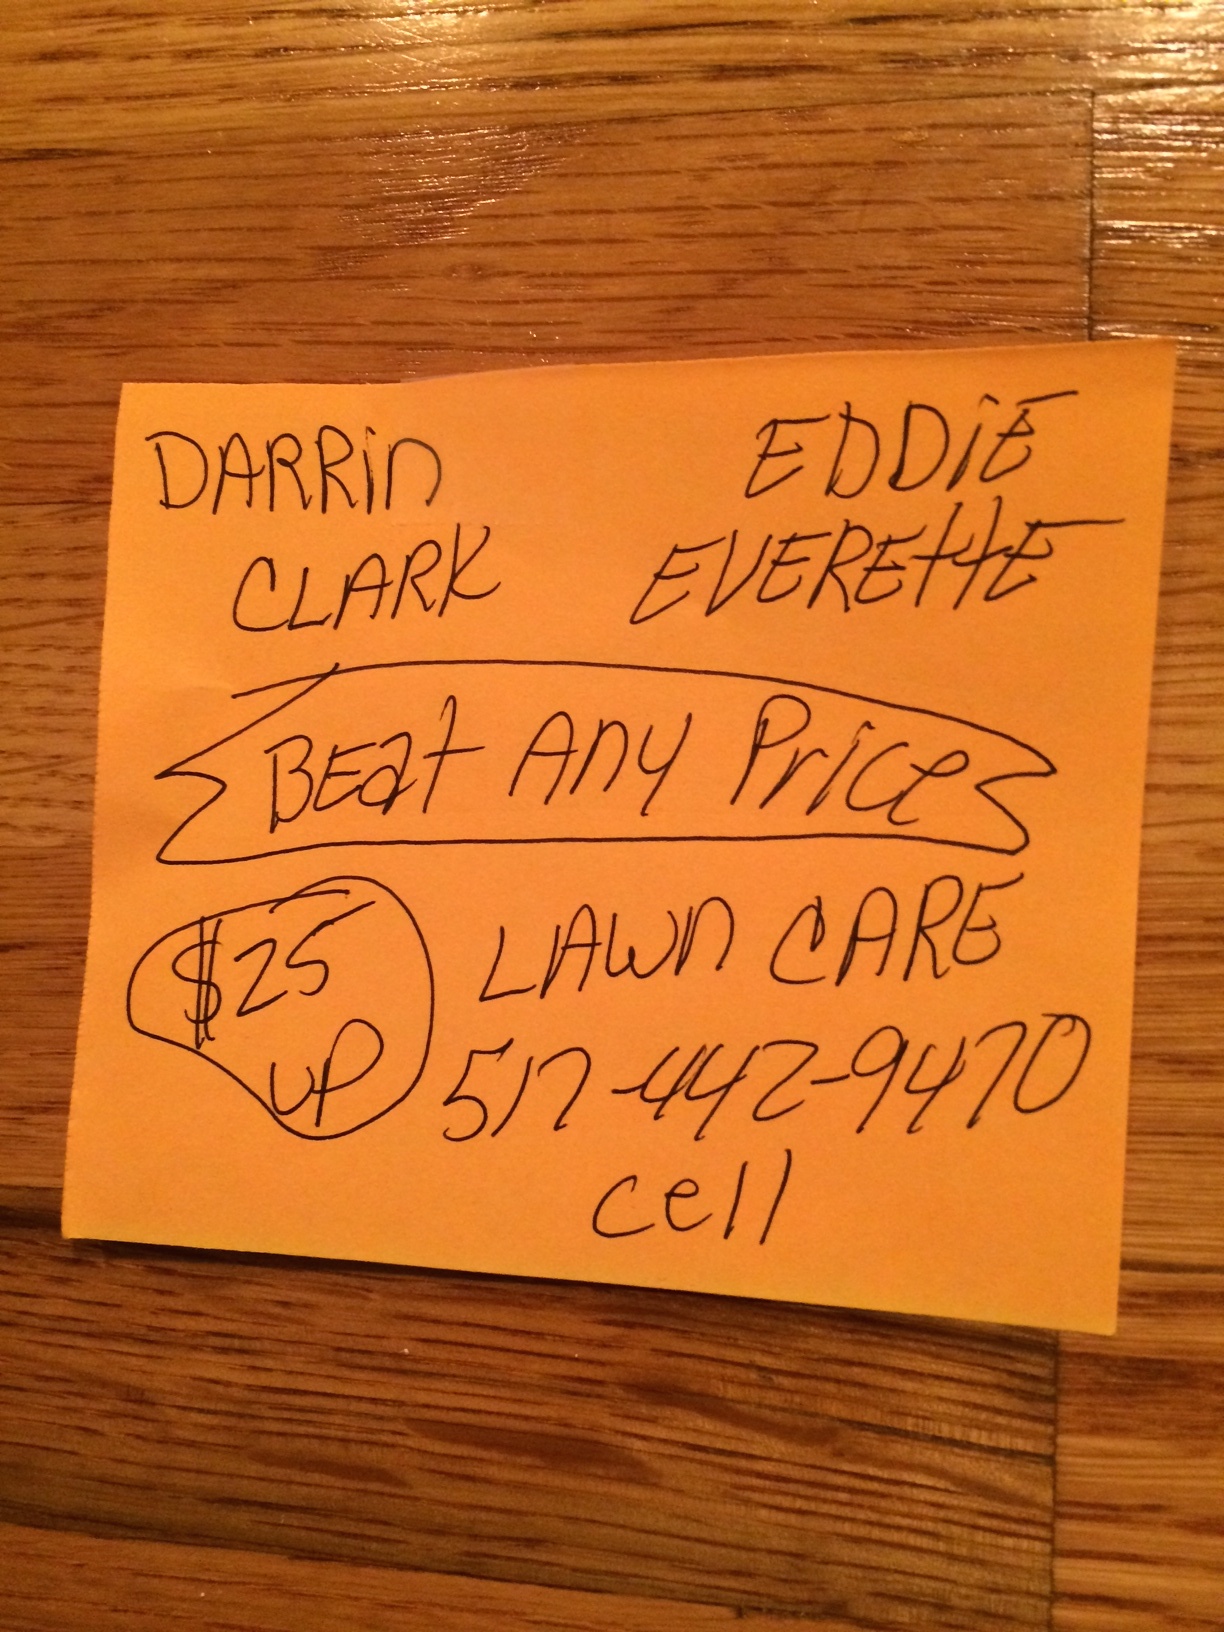 DARRin
CLARK
EDDiE
EVEREttE
BEat Any Price
$25
up
LAWn CARE
517-442-9470
cell